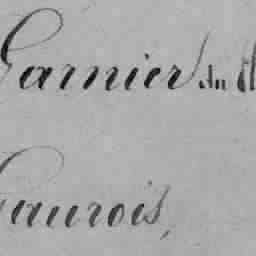 Garnier du
Gaurois,